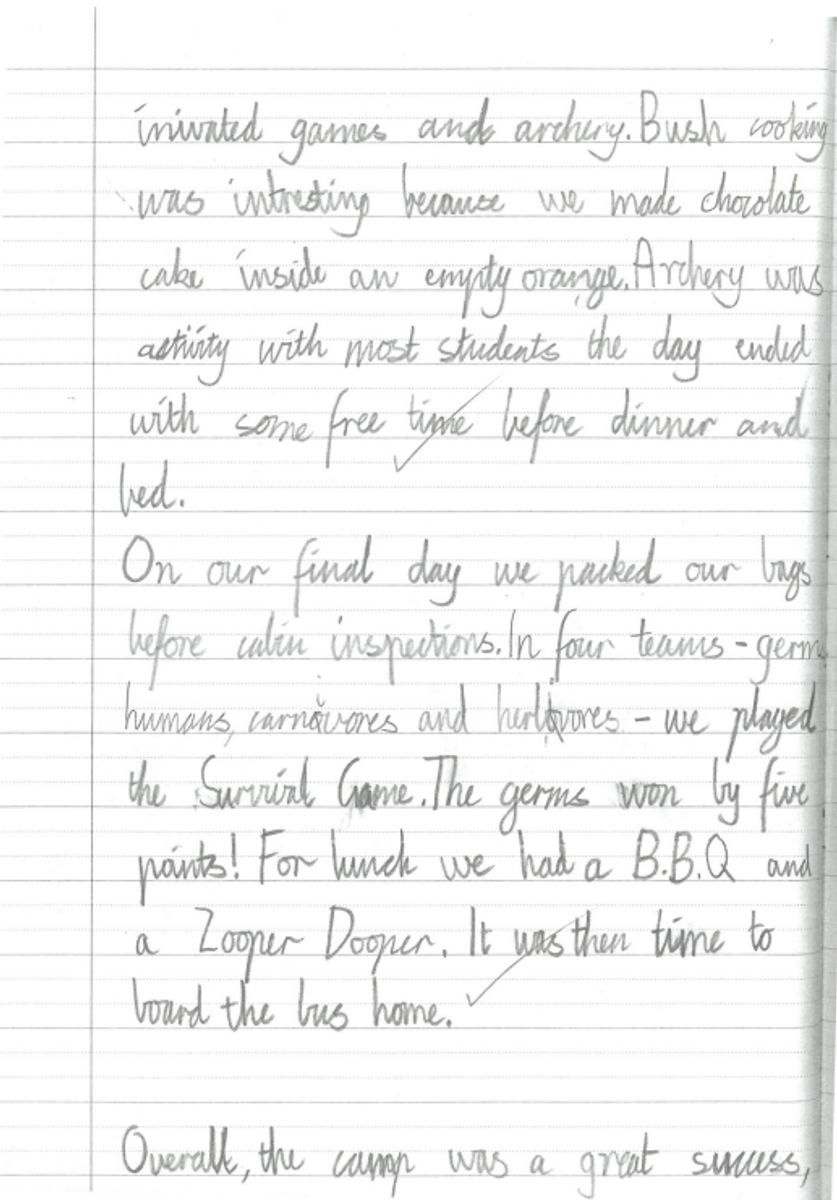 inivated games and archery. Bush cooking
was intresting because we made chocolate
cake inside an empty orange. Archery was
activity with most students the day ended
with some free time before dinner and
bed.
On our final day we packed our bags
before cabin inspections. In four teams - germ
humans, carnivores and herbivores - we played
the Survival Game. The germs won by five
points! For lunch we had a B.B.Q and
a Zooper Dooper. It was then time to
board the bus home.
Overall, the camp was a great success,